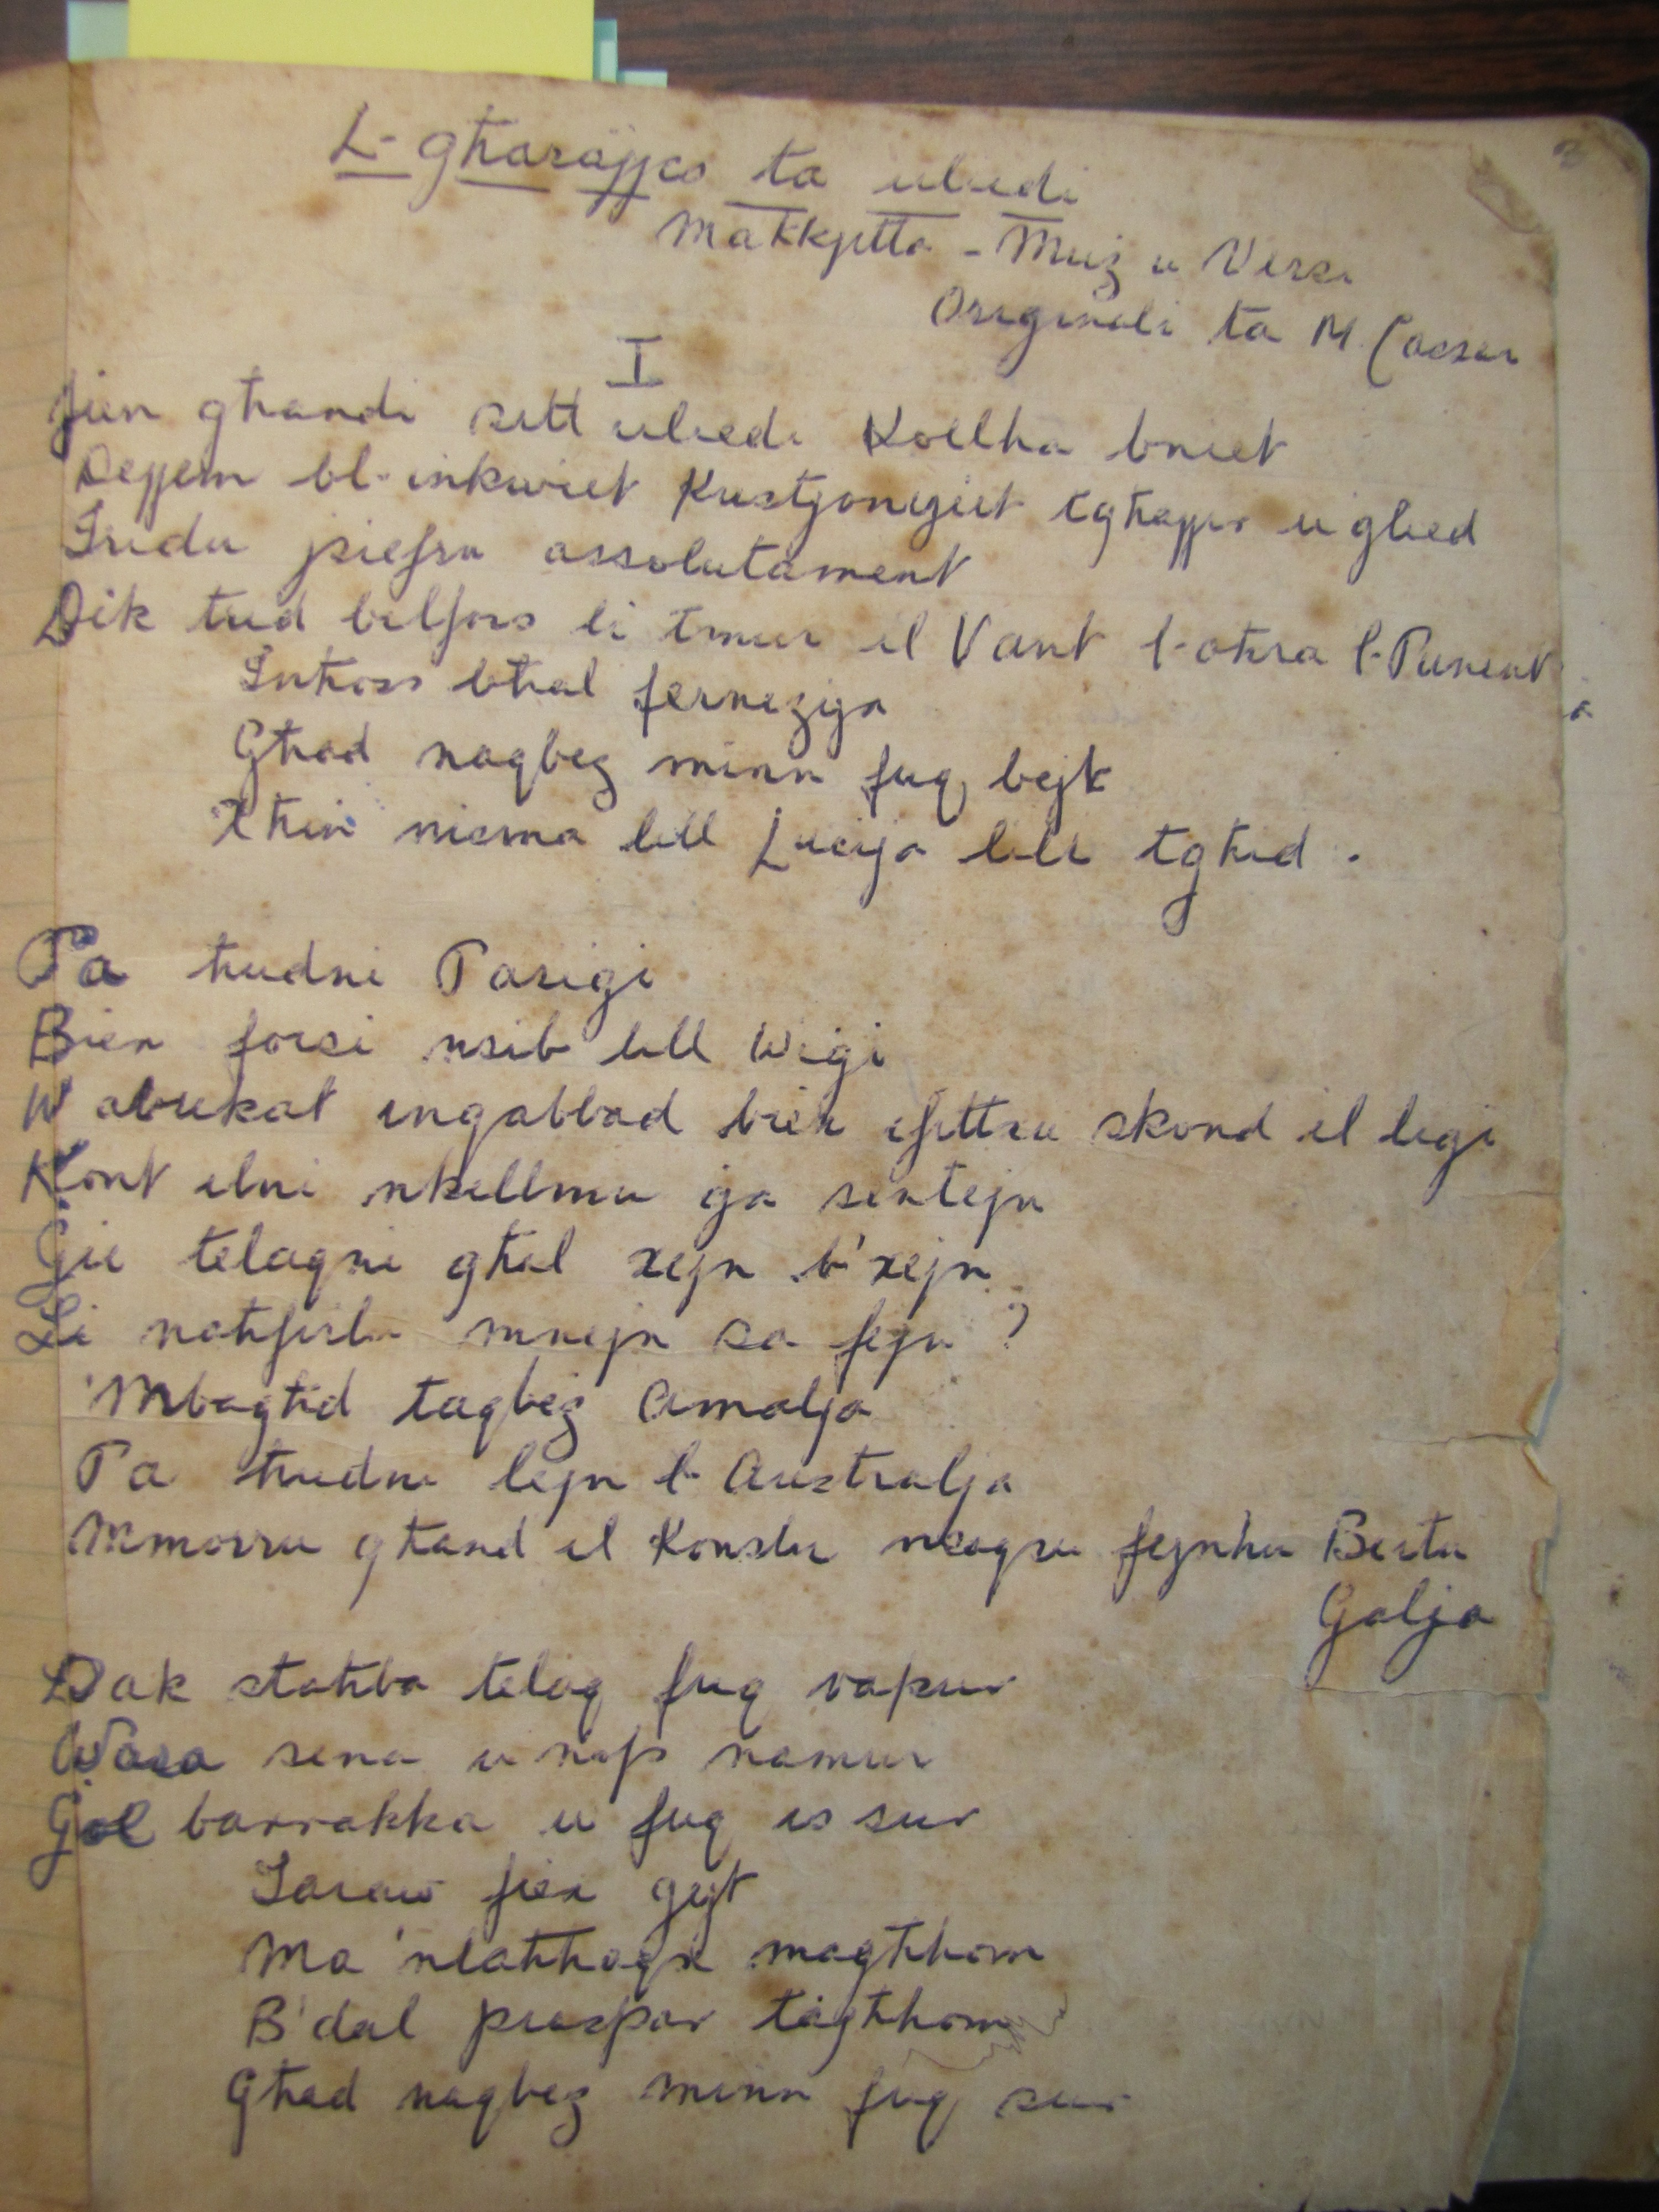 L-għarajjes ta uliedi
Makkjetta - Muż u Versi
Originali ta M. Caesar
I
Jien għandi sitt uliedi Koellha bniet
Dejjem bl-inkwiet Kustjonijiet tgħajjir u glied
Iridu jsiefru assolutament
Dik trid bilfors li tmur il Vant l-oħra l-Punent
Inħoss bħal ferneżija
Għad naqbeż minn fuq bejt
Xħin nisma lill Luċija lili tgħid .
Pa ħudni Pariġi
Biex forsi nsib lill Wiġi
W abukat ingabbad biex ifittxu skond il liġi
Kont ilni nkellmu ġa sentejn
Ġie telaqni għal xejn b'xejn
Li naħfirlu mnejn sa fejn ?
'Mbagħd taqbeż Amalja
Pa ħudni lejn l-Australja
Mmorru għand il Konslu nsaqsu fejnhu Bertu
Galja
Dak staħba telaq fuq vapur
Wara sena u nofs namur
Ġol barrakka u fuq is sur
Taraw fiex ġejt
Ma 'nlaħħaqx magħhom
B'dal pruspar tagħhom
Għad naqbeż minn fuq sur